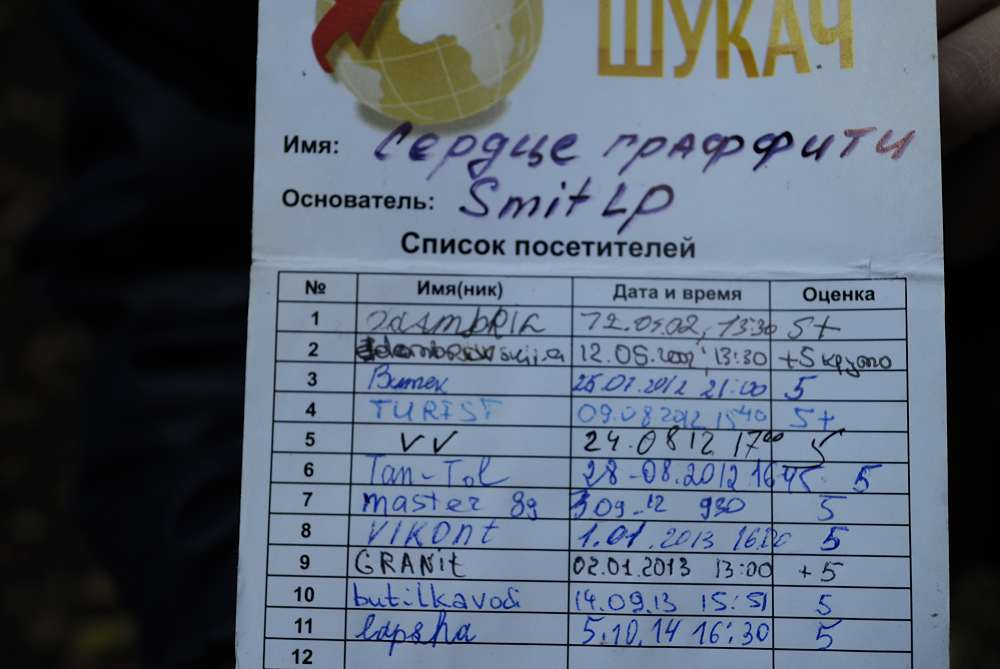 ШУКАЧ
Имя: Сердце граффити
Основатель: Smit LP
Список посетителей
№ Имя(ник) Дата и время Оценка
1 13:30 5+
2 12.05. 13:30 +5 круто
3 Витек 25.07.2012 21:00 5
4 TURIST 09.08.2012 15 40 5+
5 VV 24.08 12 17 00 5
6 Tan-Tol 28-08.2012 16 45 5
7 master 89 3 09 12 9 30 5
8 VIKONt 1.01.2013 16:00 5
9 GRANit 02.01.2013 13:00 +5
10 butilkavodi 14.09.13 15:51 5
11 lapsha 5.10.14 16:30 5
12